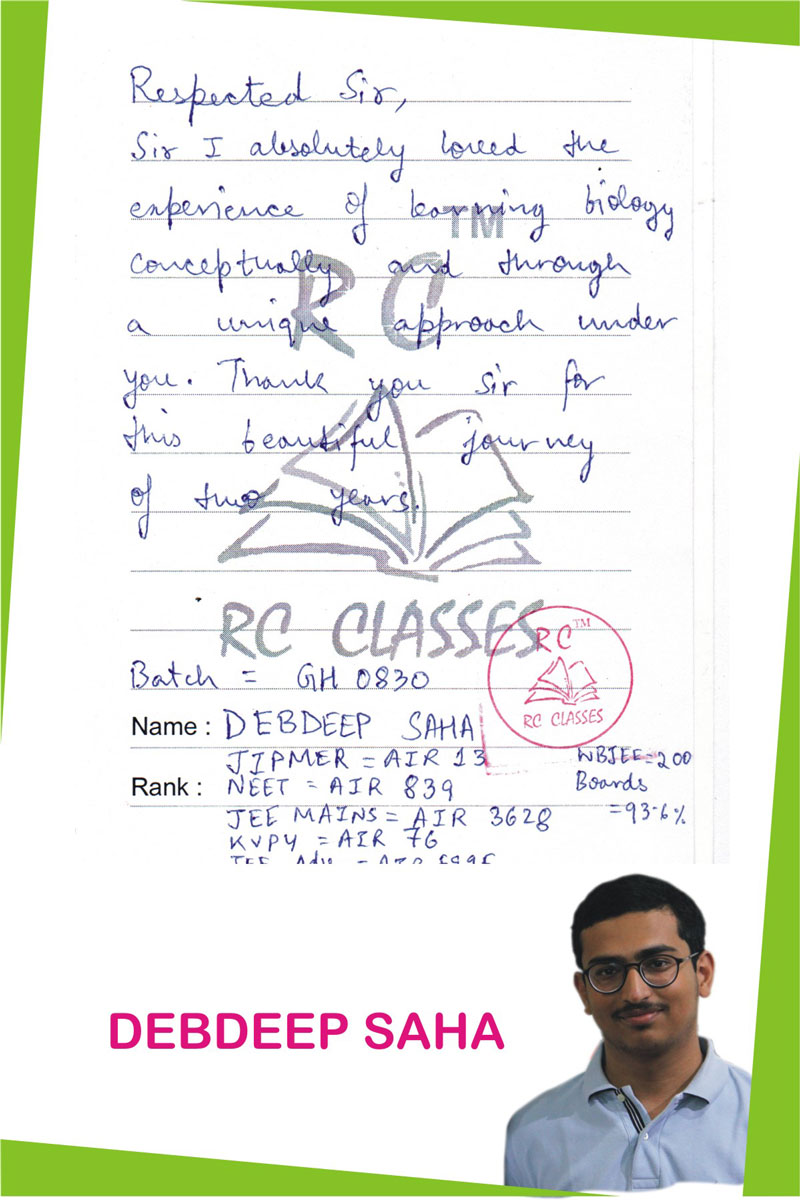 Respected Sir,
Sir I absolutely loved the
experience of learning biology
TM
conceptually and through
RC
a unique approach under
you. Thank you sir for
this beautiful journey
of two years.
RC CLASSES
RC TM
RC CLASSES
Batch = GH 0830
Name : DEBDEEP SAHA
JIPMER = AIR 13 WBJEE = 200
Rank : NEET = AIR 839 Boards
JEE MAINS = AIR 3628 = 93.6%
KVPY = AIR 76
DEBDEEP SAHA